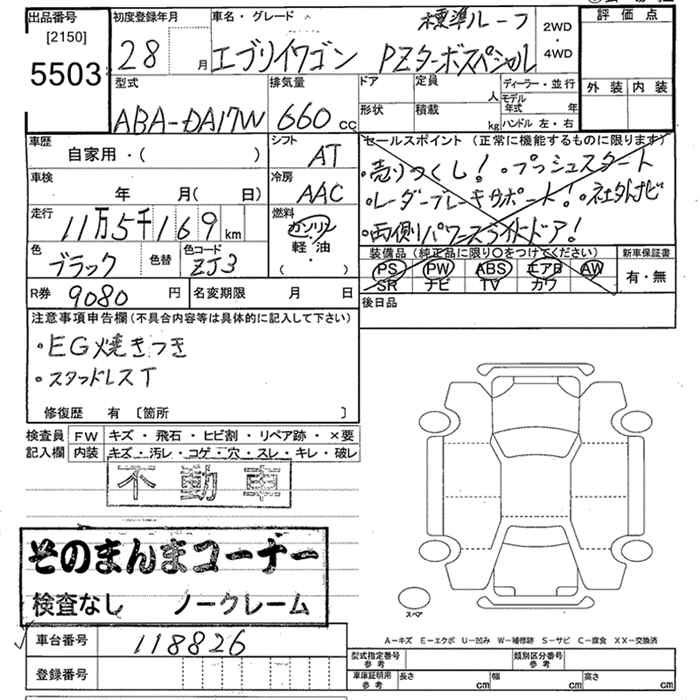 出品番号
[2150]
5503
初度登録年月
28 月
車名・グレード
エブリイワゴン PZターボスペシャル
標準ルーフ
2WD
・
4WD
評価点
外装 内装
型式
ABA-DA17W
排気量
660 cc
ドア
形状
定員 人
積載 kg
ディーラー・並行
モデル年式 年
ハンドル 左・右
車歴
自家用・( )
シフト
AT
車検
年 月( 日)
冷房
AAC
走行
11万5千169 km
燃料
ガソリン
軽・油
・
( )
色
ブラック
色替
色コード
ZJ3
R券 9080 円
名変期限 月 日
セールスポイント (正常に機能するものに限ります)
・売りつくし!・プッシュスタート
・レーダーブレーキサポート!・社外ナビ
・両側パワースライドドア!
装備品 (純正品に限り○をつけてください)
PS PW ABS エアB AW
SR ナビ TV カワ
新車保証書
有・無
後日品
注意事項申告欄 (不具合内容等は具体的に記入して下さい)
・EG焼きつき
・スタッドレスT
修復歴 有 [箇所 ]
検査員記入欄
FW キズ・飛石・ヒビ割・リペア跡・×要
内装 キズ・汚レ・コゲ・穴・スレ・キレ・破レ
不動車
そのまんまコーナー
検査なし ノークレーム
車台番号 118826
登録番号
スペア
A-キズ E-エクボ U-凹み W-補修跡 S-サビ C-腐食 XX-交換済
型式指定番号 参考
類別区分番号 参考
車庫証明用 参考
長さ cm
幅 cm
高さ cm